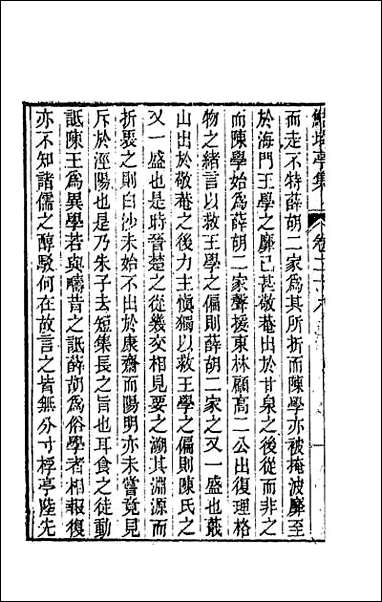 鮚埼亭集　卷二十八
而走不特薛胡二家為其所折而陳學亦被掩波靡至
於海門王學之靡已甚敬菴出於甘泉之後從而非之
而陳學始為薛胡二家聲援東林顧高二公出復理格
物之緒言以救王學之偏則薛胡二家之又一盛也蕺
山出於敬菴之後力主慎獨以救王學之偏則陳氏之
又一盛也是時晉楚之從幾交相見要之溯其淵源而
折衷之則白沙未始不出於康齋而陽明亦未嘗竟見
斥於涇陽也是乃朱子去短集長之旨也耳食之徒動
詆陳王為異學若與疇昔之詆薛胡為俗學者相報復
亦不知諸儒之醇駁何在故言之皆無分寸桴亭陸先